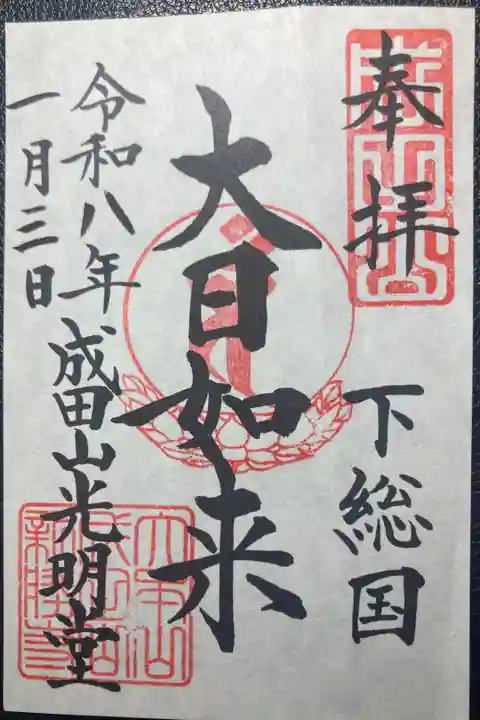 奉拝
下総国
大日如来
令和八年
一月三日
成田山光明堂